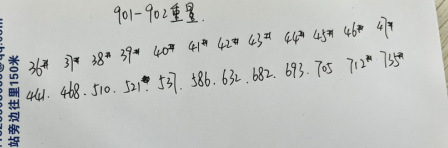 901-902重量.
36# 37# 38# 39# 40# 41# 42# 43# 44# 45# 46# 47#
441. 468. 510. 521. 537. 586. 632. 682. 693. 705 712 735
站旁边往里150米